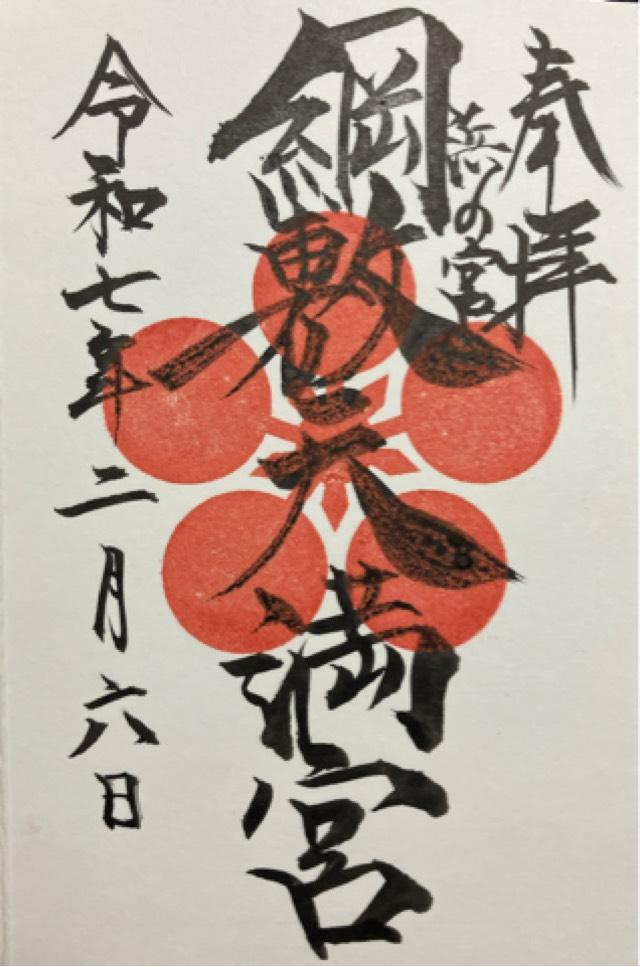 奉拝
浜の宮
綱敷天満宮
令和七年二月六日